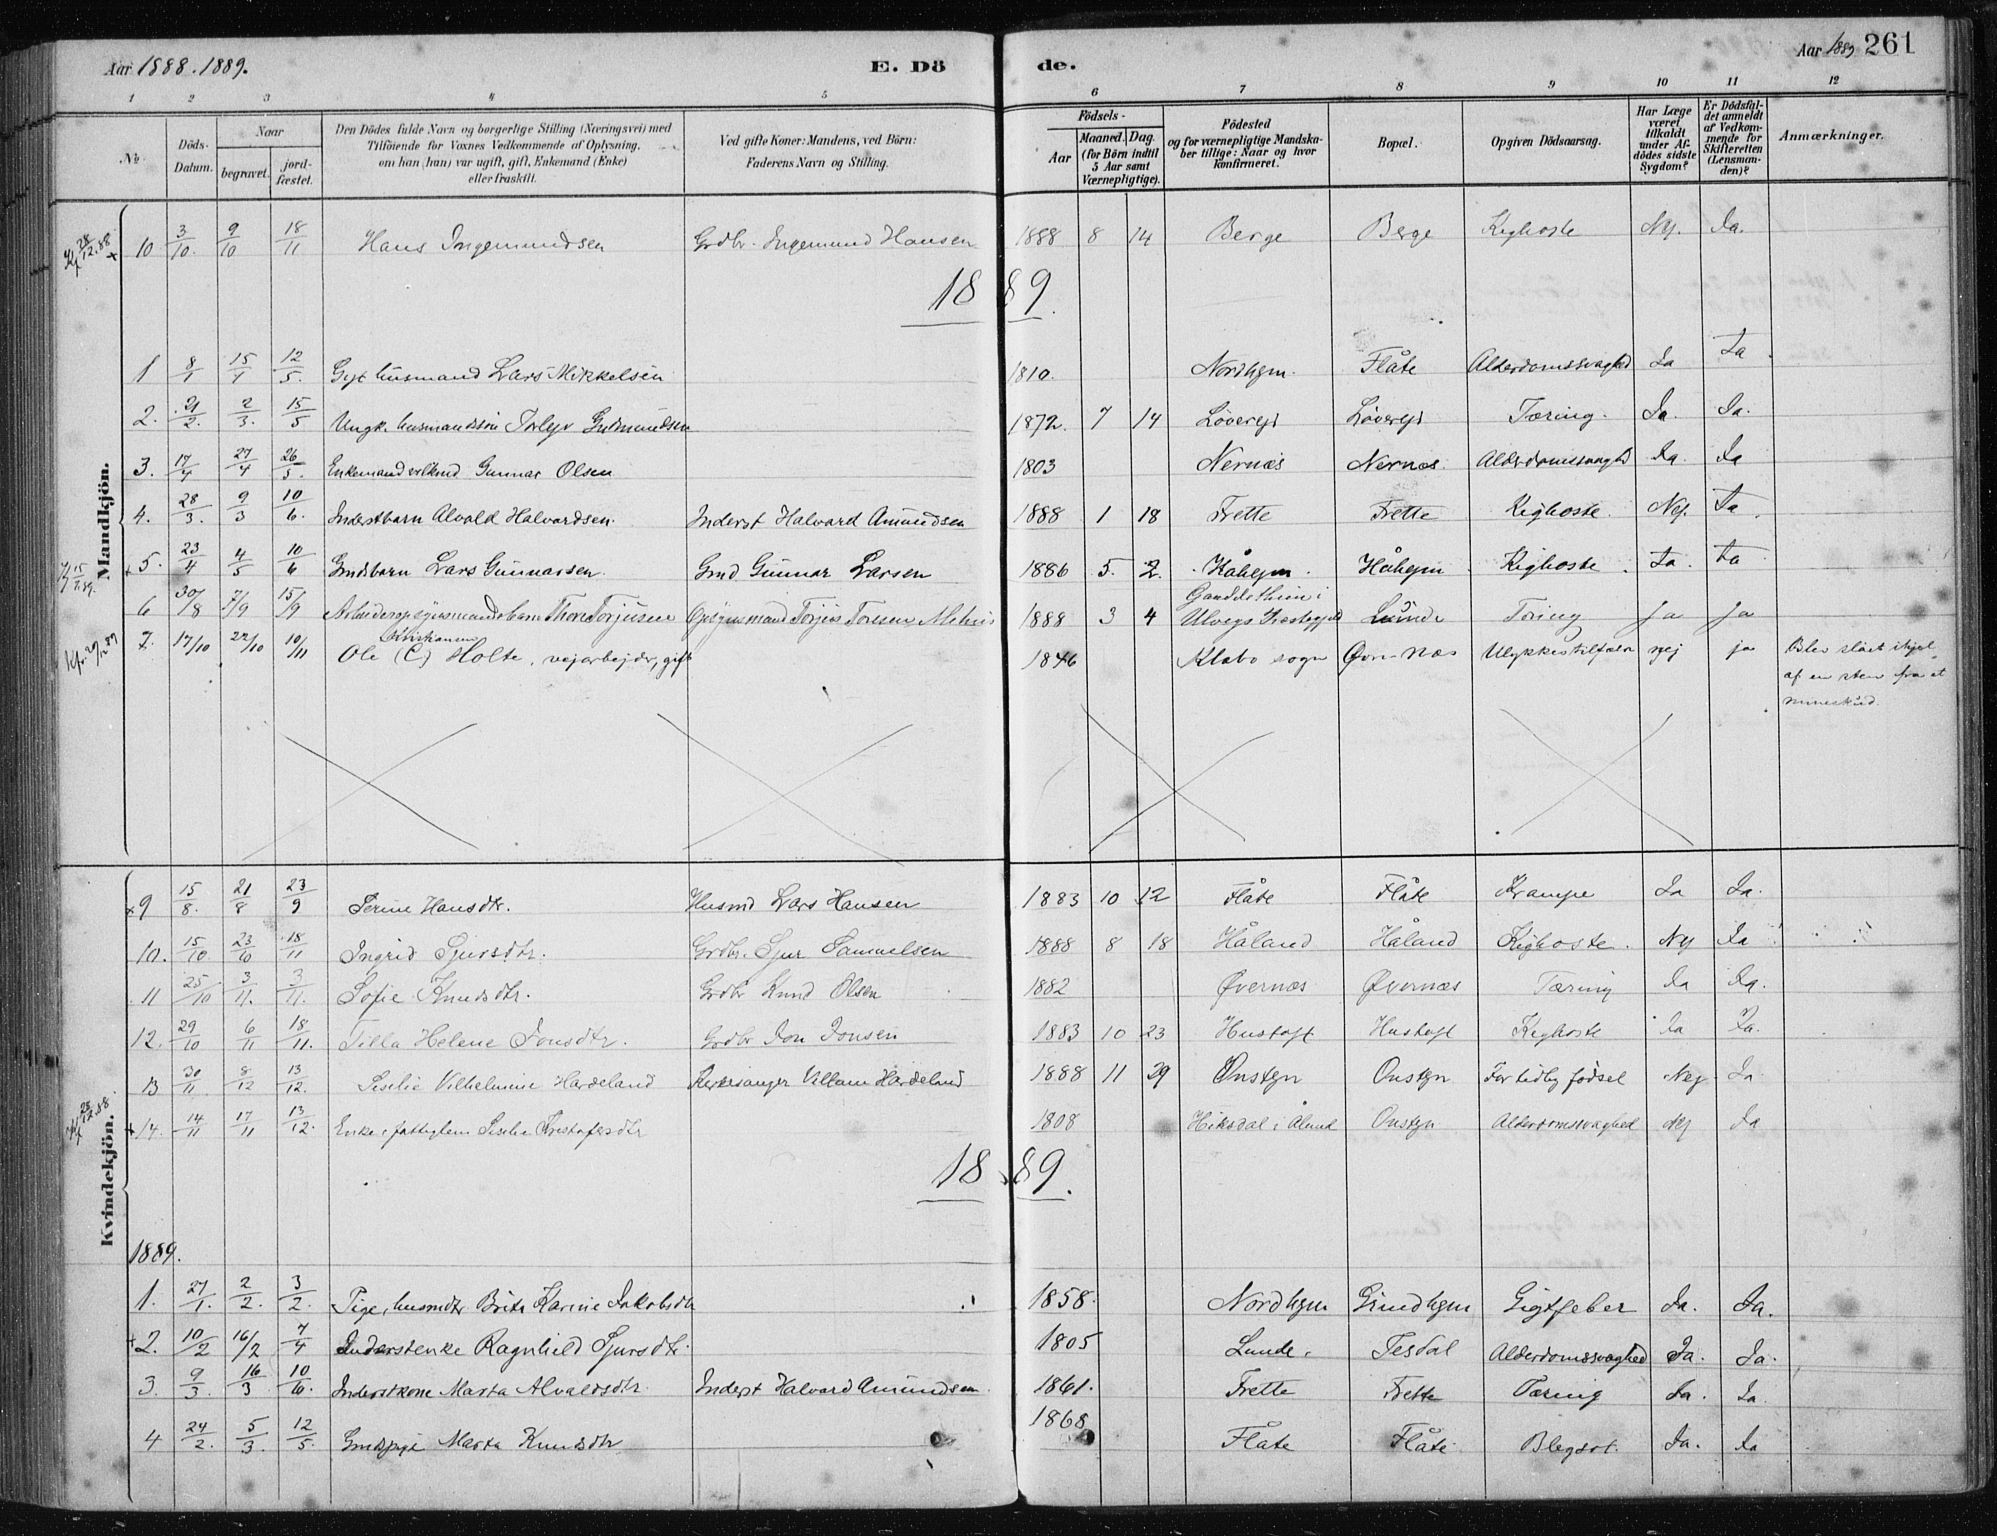 Aar 1888. 1889.
E. Dö de.
Aar 1889 261
1 2 3 4 5 6 7 8 9 10 11 12
No.
Döds-Datum.
Naar
begravet.
jord-fæstet.
Den Dödes fulde Navn og borgerlige Stilling (Næringsvei) med
Tilföiende for Voxnes Vedkommende af Oplysning,
om han (hun) var ugift, gift, Enkemand (Enke)
eller fraskilt.
Ved gifte Koner: Mandens, ved Börn:
Faderens Navn og Stilling.
Födsels-
Aar
Maaned. Dag.
(for Börn indtil
5 Aar samt
Værnepligtige).
Födested
og for værnepligtige Mandska-
ber tillige: Naar og hvor
konfirmeret.
Bopæl.
Opgiven Dödsaarsag.
Har Læge
været
tilkaldt
under Af-
dödes sidste
Sygdom?
Er Dödsfal-
det anmeldt
af Vedkom-
mende for
Skifteretten
(Lensman-
den)?
Anmærkninger.
Mandkjön.
10 3/10. 9/10 18/11 Hans Ingemundsen Grdbr. Ingemund Hansen 1888 8 14 Berge Berge Kighoste Nej. Ja.
1889.
1 8/1 15/1 12/5. Gift husmand Lars Mikkelsen 1810. Nordhgm. Flåte Alderdomssvaghed Ja Ja.
2. 21/2. 2/3. 15/5 Ungk. husmandssøn Torleiv Gudmundsen 1872. 7 14 Løvereid Løvereid Tæring. Ja. Ja.
3. 17/4 27/4 26/5. Enkemand Gunnar Olsen 1803 Nernæs Nernæs. Alderdomssvaghed Ja. Ja
4. 28/3. 9/3 10/6. Inderstbarn Alvald Halvardsen. Inderst Halvard Amundsen 1888 1 18 Frette Frette Kighoste. Nej. Ja.
5. 23/4 4/5 10/6 Grndsbarn Lars Gunnarsen. Grnd Gunnar Larsen 1886 5. 2. Håhejm. Håhejm Kighoste. Ja. Ja
6 30/8 7/9 15/9 Thore Torjusen Opsynsmand Torjus Toresen 1888 3 4 Ulvegs Præstegjeld Lunde Tæring Ja Ja
7. 17/10 22/10 10/11 Ole (C) Christianson Holte, vejarbejder, gift 1846 Klæbo sogn Øvernæs Ulykkestilfælde nej ja Blev slået ihjel
af en sten fra et
mineskud.
Kvindekjön.
9 15/8. 21/8 23/9 Serine Hansdtr. Husmd Lars Hansen 1883 10 12 Flåte Flåte Krampe Ja Ja.
10. 15/10 23/10 18/11 Ingrid Sjursdtr. Grdbr. Sjur Samuelsen 1888 8 18 Håland Håland Kighoste. Nej Ja
11 25/10 3/11. 3/11. Sofie Knudsdtr. Grdbr Knud Olsen 1882 Øvernæs Øvernæs Tæring Ja Ja.
12. 29/10 6/11 18/11. Tilla Helene Jonsdtr. Grdbr Jon Jonsen 1883 10 23 Hustoft Hustoft Kighoste Ja Ja.
13 30/11. 8/12 13/12. Seselie Vilhelmine Hardeland Kirkesanger Villam Hardeland 1888 11 29 Ønstgn Onstgn For tidlig fødsel Nej Ja
14. 14/11 17/11 13/12. Enke, fattiglem Seselie Kristofersdtr 1808 Onstgn Alderdomssvaghed Nej Ja
1889.
1889.
1. 27/1. 2/2. 3/2. Pige, husmdtr Brita Karine Jakobsdtr 1858. Nordhgm Grindhgm Gigtfeber Ja. Ja.
2. 10/2 16/2 7/4 Inderstenke Ragnhild Sjursdtr. 1805 Lunde. Tesdal Alderdomssvaghed Ja. Ja.
3. 9/3. 16/3 10/6. Inderstkone Marta Alvaldsdtr. Inderst Halvard Amundsen. 1861. Frette Frette Tæring Ja. Ja
4 24/2. 5/3. 12/5. Grndspige Marta Knudsdtr 1868 Flåte Flåte Blegsot. Ja. Ja